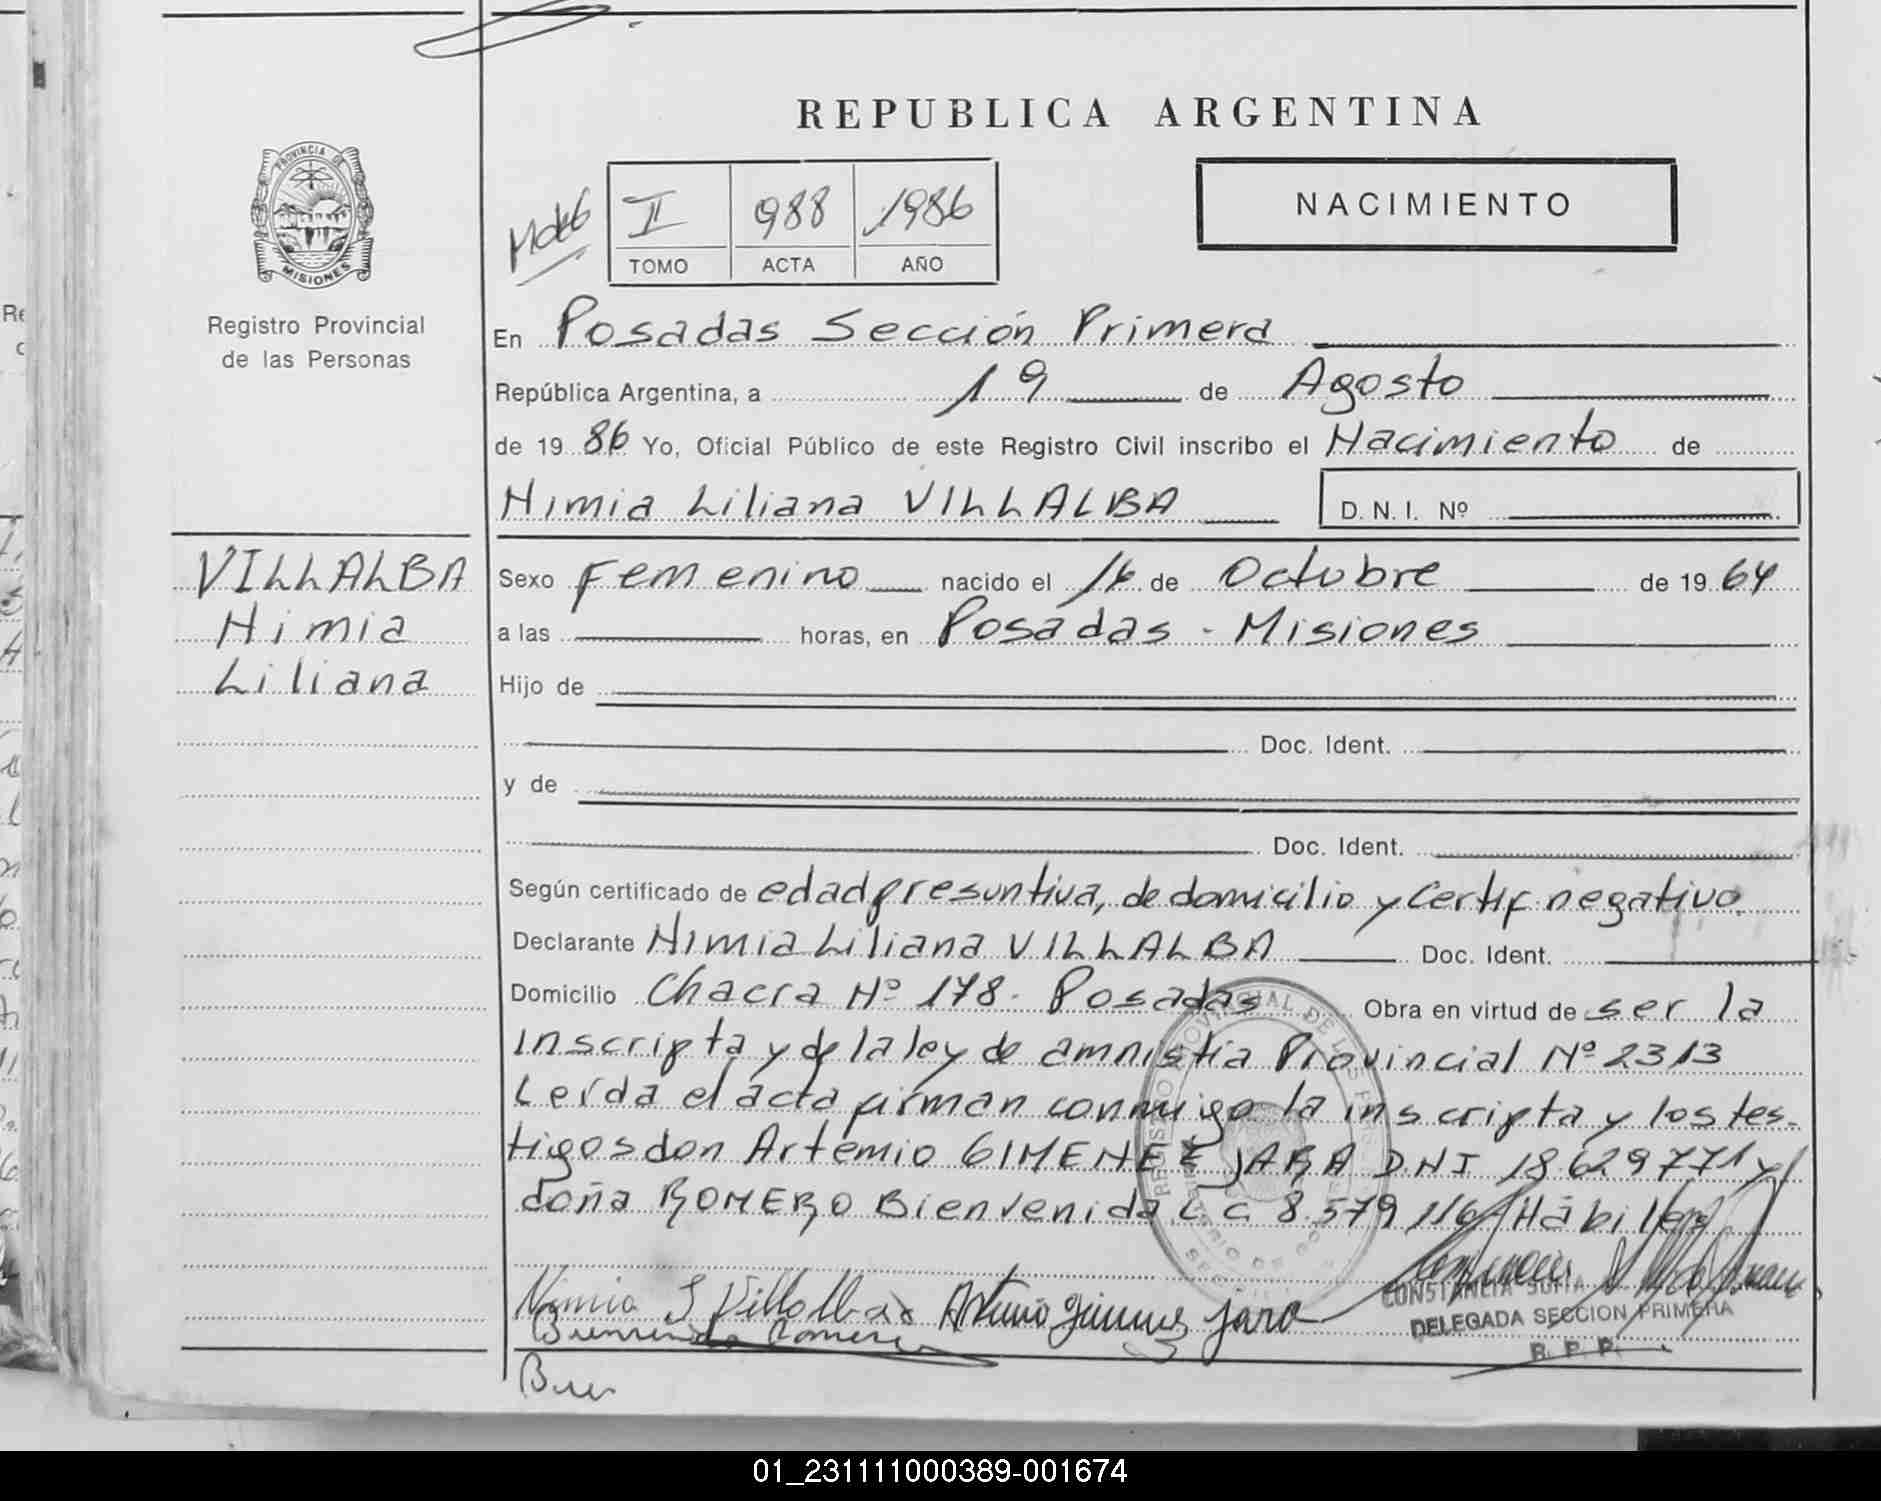 REPUBLICA ARGENTINA
PROVINCIA DE
MISIONES
Registro Provincial
de las Personas
II 988 1986
TOMO ACTA AÑO
NACIMIENTO
En Posadas Sección Primera
República Argentina, a 19 de Agosto
de 19 86 Yo, Oficial Público de este Registro Civil inscribo el Nacimiento de
Nimia Liliana VILLALBA D.N.I. Nº
VILLALBA
Nimia
Liliana
Sexo Femenino nacido el de Octubre de 19 64
a las horas, en Posadas - Misiones
Hijo de
Doc. Ident.
y de
Doc. Ident.
Según certificado de edad presuntiva, de domicilio y Certif. negativo.
Declarante Nimia Liliana VILLALBA Doc. Ident.
Domicilio Chacra Nº 178. Posadas Obra en virtud de ser la
inscripta y de la ley de amnistia Provincial Nº 2313
Leída el acta firman conmigo la inscripta y los tes-
tigos don Artemio GIMENEZ JARA D.N.I 18.629771 y
doña ROMERO Bienvenida L C 8.579 116 Hábiles
Nimia L Villalba Artemio Gimenez Jara
Bienvenida Romero
CONSTANCIA SOFIA
DELEGADA SECCION PRIMERA
R. P. P.
01_231111000389-001674